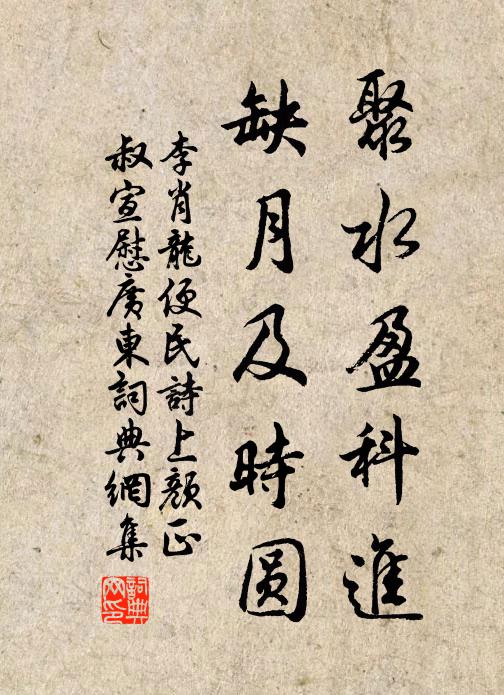 聚水盈科進
缺月及時圓
李肖龍便民詩上顏正
叔宣慰廣東詞典網集
詞典网印